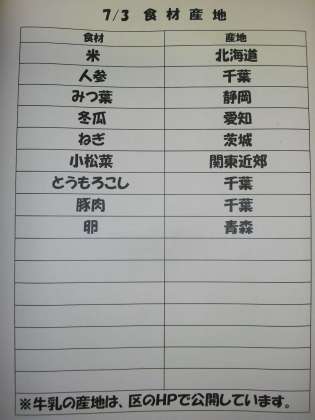 7/3 食材産地
食材 産地
米 北海道
人参 千葉
みつ葉 静岡
冬瓜 愛知
ねぎ 茨城
小松菜 関東近郊
とうもろこし 千葉
豚肉 千葉
卵 青森
※牛乳の産地は、区のHPで公開しています。